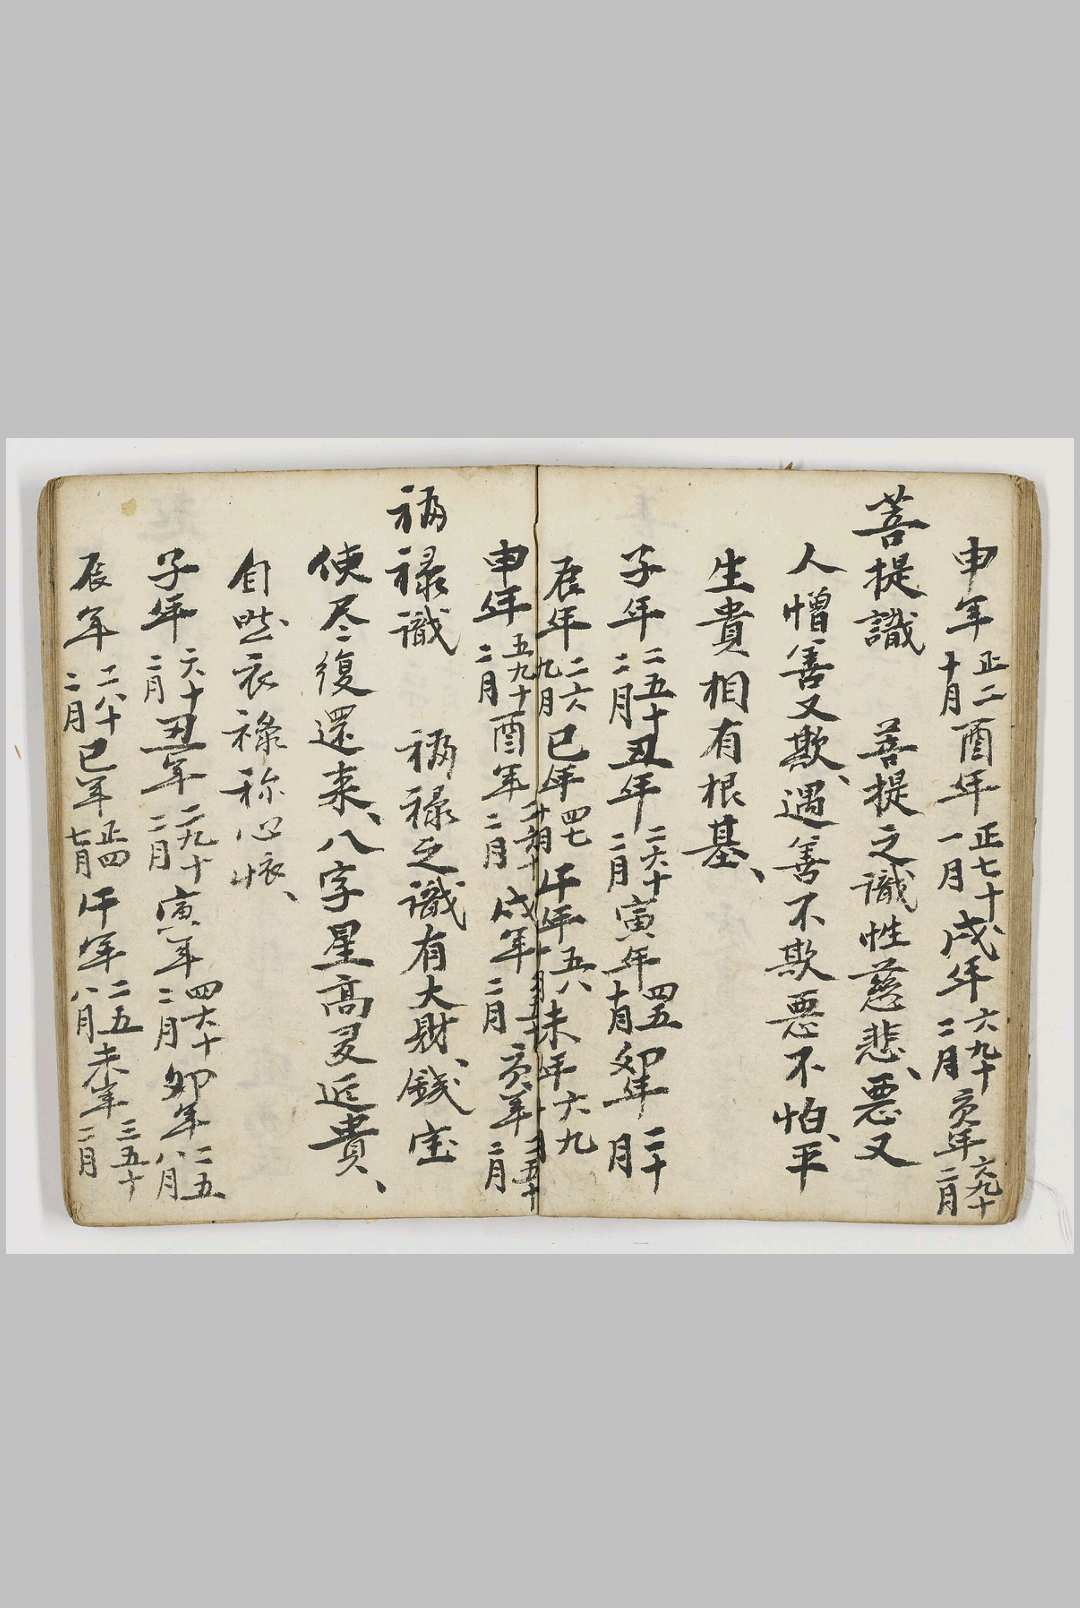 申年正二十月酉年正七十一月戌年六九十二月亥年六九十二月
菩提識 菩提之識性慈悲、惡又
人憎善又欺、遇善不欺惡不怕、平
生貴相有根基、
子年二五十二月丑年二六十二月寅年四五十月卯年二十月
辰年二六九月巳年四七午年五八未年六九
申年五九十二月酉年二月戌年二月亥年二月
福禄識 福禄之識有大財、錢宝
使尽復還来、八字星高足近貴、
自 衣祿称心怀、
子年六十二月丑年二九十二月寅年四六十二月卯年二五八月
辰年二八十二月巳年正四七月午年二五八月未年三五十二月